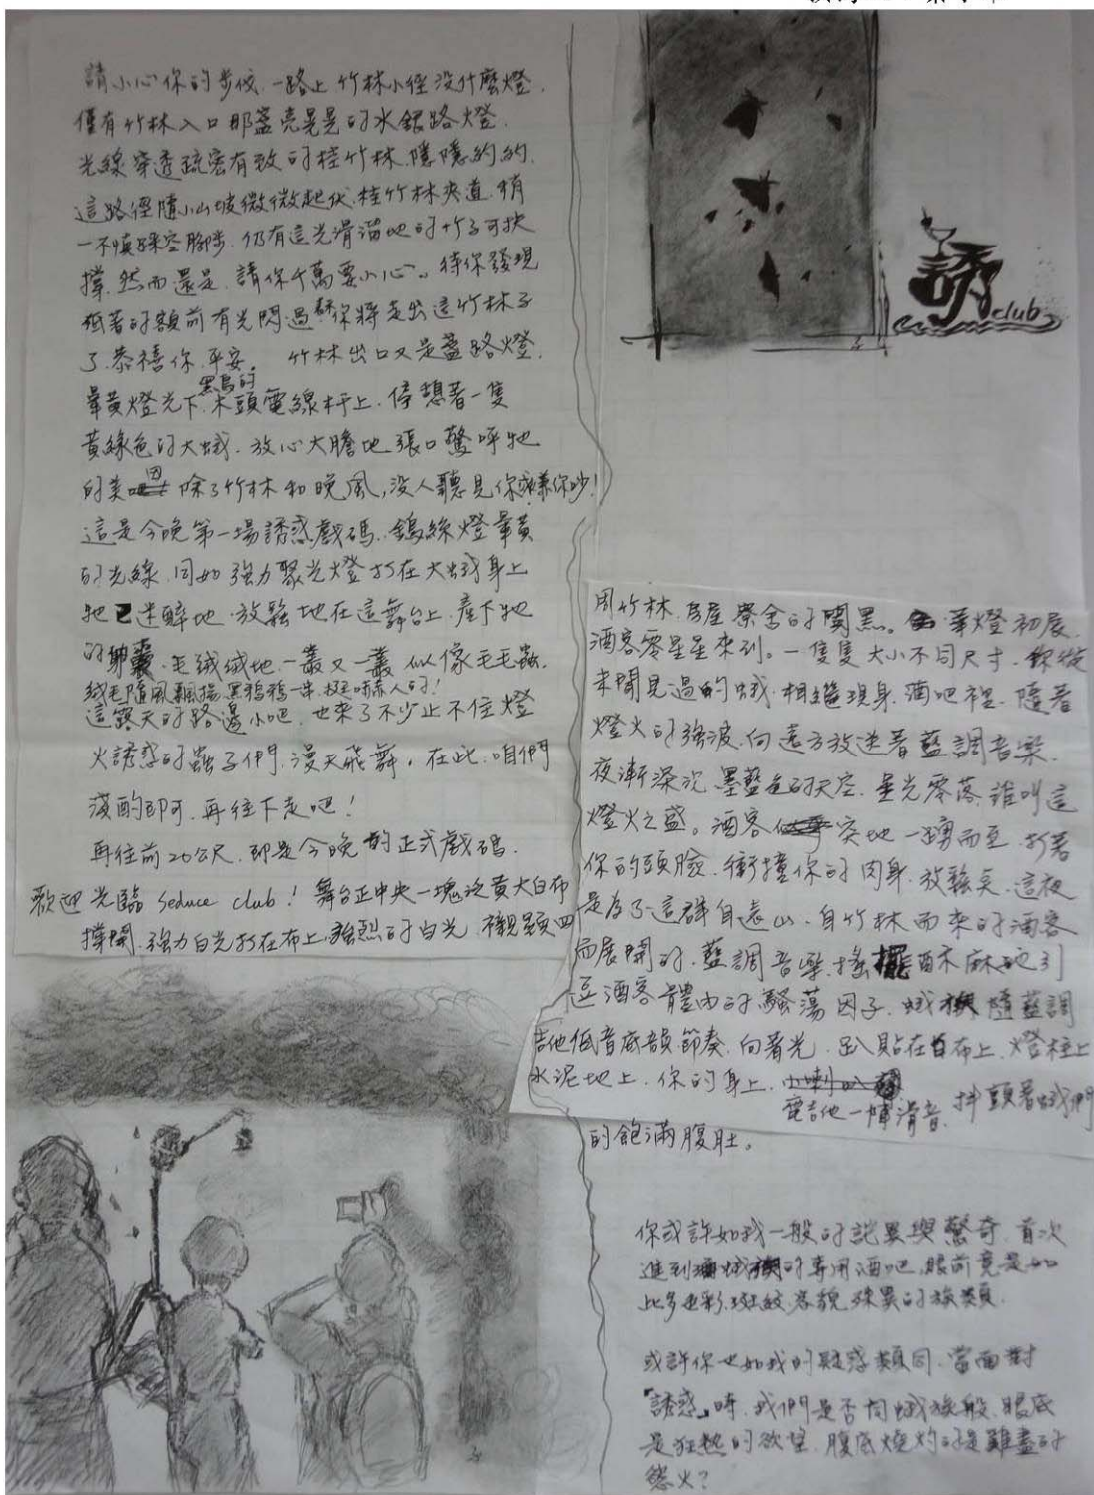 請小心你的步伐.一路上竹林小徑沒什麼燈.
僅有竹林入口那盞亮晃晃的水銀路燈.
光線穿透疏密有致的桂竹林.隱隱約約.
這路徑隨小山坡微微起伏.桂竹林夾道.稍
一不慎踩空腳步.仍有這光滑溜地的竹子可扶
撐.然而還是.請你千萬要小心。待你發現
低著的額前有光閃過 你將走出這竹林子
了.恭禧你.平安。 竹林出口又是盞路燈.
暈黃燈光下.黑烏的木頭電線杆上.停憩著一隻
黃綠色的大蛾.放心大膽地張口驚呼牠
的美 因 除了竹林和晚風,沒人聽見你或嫌你吵!
這是今晚第一場誘惑戲碼.鎢絲燈暈黃
的光線.同如強力聚光燈打在大蛾身上
牠已迷醉地.放鬆地在這舞台上.產下牠
的卵囊.毛絨絨地一叢又一叢 似像毛毛蟲.
絨毛隨風飄揚.黑鴉鴉一半.挺嚇人的!
這露天的路邊小吧.也來了不少止不住燈
火誘惑的蟲子們.漫天飛舞.在此.咱們
淺酌即可.再往下走吧!
再往前20公尺.即是今晚的正式戲碼.
歡迎光臨 Seduce club! 舞台正中央一塊泛黃大白布
撐開.強力白光打在布上.強烈的白光.襯顯四
誘
club
周竹林.房屋寮舍的闃黑。 華燈初展.
酒客零星星來到。一隻隻大小不同尺寸.
未聞見過的蛾.相繼現身.酒吧裡.隨著
燈火的強波.向遠方放送著藍調音樂.
夜漸深沉.墨藍色的天空.星光零落.誰叫這
燈火之盛。酒客 突地一踴而至.打著
你的頭臉.衝撞你的肉身.放鬆矣.這夜
是為了這群自遠山.自竹林而來的酒客
而展開的.藍調音樂.搖擺酥麻地引
逗酒客體內的騷蕩因子.蛾 隨藍調
吉他低音底韻節奏.向著光.趴貼在白布上.燈柱上
水泥地上.你的身上.
電吉他一陣滑音.抖顫著蛾們
的飽滿腹肚。
你或許如我一般的詫異與驚奇.首次
進到 蛾族的專用酒吧.眼前竟是如
此多色彩.斑紋.容貌殊異的族類.
或許你也如我的疑惑類同.當面對
「誘惑」時.我們是否同蛾族般.眼底
是狂熱的欲望.腹底燒灼的是難盡的
慾火?